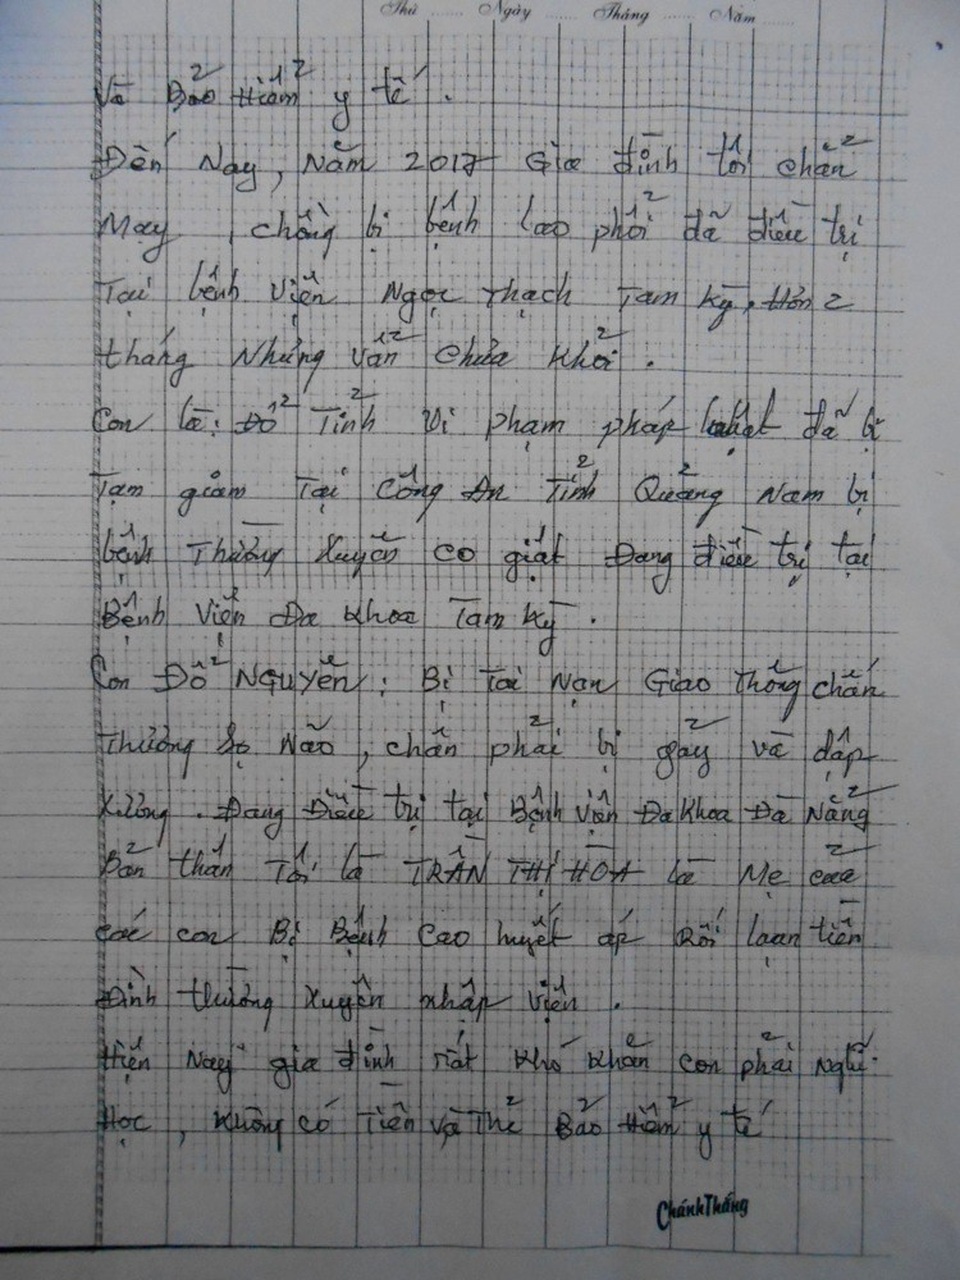 Thứ ...... Ngày ...... Tháng ...... Năm ......
Và Bảo Hiểm y tế .
Đến Nay, Năm 2017 Gia đình tôi chẳn
May , chồng bị bệnh lao phổi đã điều trị
Tại bệnh viện Ngọc Thạch Tam Kỳ, Hơn 2
tháng Nhưng vẫn chưa khỏi .
Con là: Đỗ Tính Vi phạm pháp luật đã bị
Tạm giam Tại Công An Tỉnh Quảng Nam bị
bệnh Thường Xuyên co giật Đang điều trị tại
Bệnh Viện Đa Khoa Tam Kỳ .
Con Đỗ NGUYÊN : Bị Tai Nạn Giao thông chấn
Thương Sọ Não , chân phải bị gãy và dập
Xương . Đang Điều trị tại Bệnh viện Đa Khoa Đà Nẵng
Bản thân Tôi là TRẦN THỊ HOA là Mẹ của
các con Bị Bệnh Cao huyết áp Rối loạn tiền
Đình thường Xuyên nhập viện .
Hiện Nay gia đình rất khó khăn con phải nghỉ
Học , Không có Tiền và Thẻ Bảo Hiểm y tế
ChánhThắng